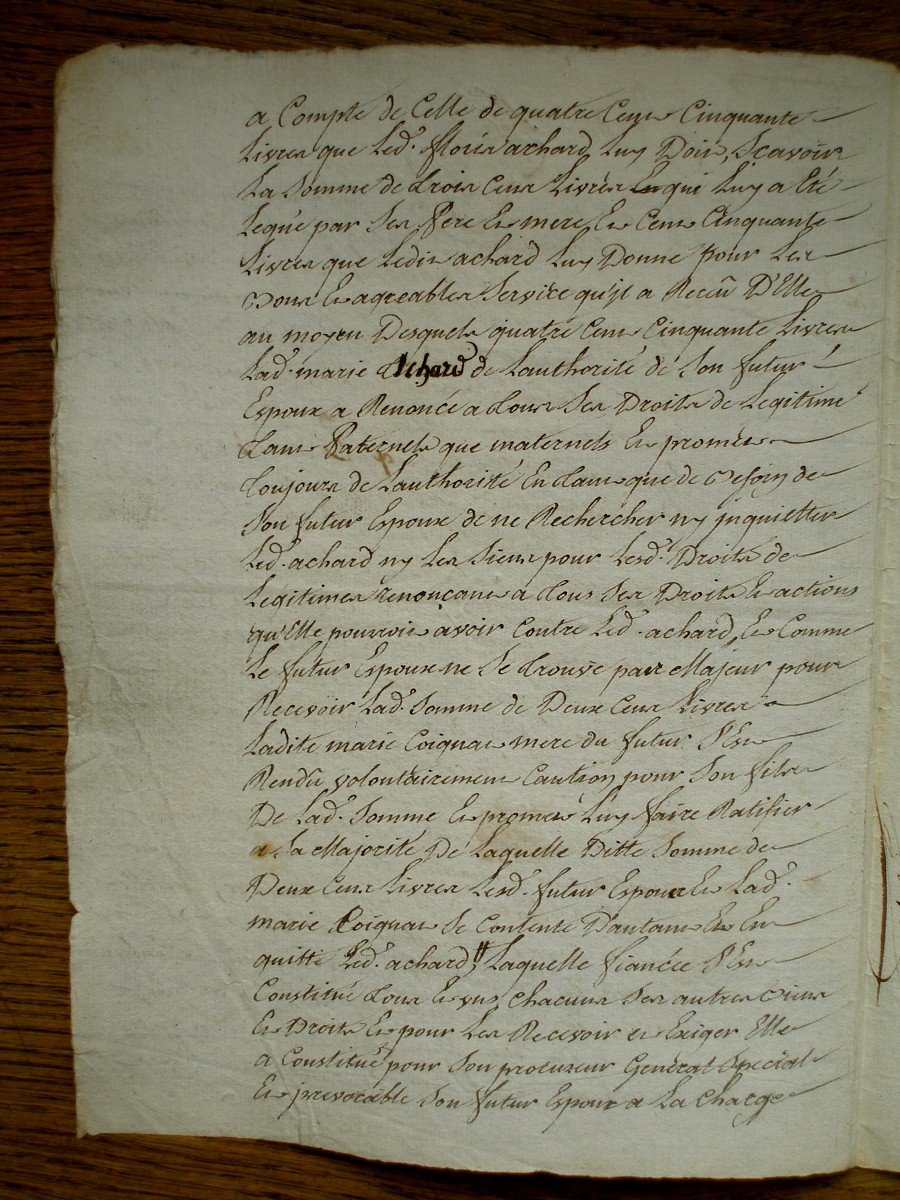 a Compte de Celle de quatre Cens Cinquante
Livres que Led. floris achard Luy Doit, Scavoir
La Somme de trois Cens Livres qui Luy a Eté
Legué par Ses Pere Et mere Et Cens Cinquante
Livres que Ledit achard Luy Donne pour Les
Bons Et agreables Service qu'jl a Receu D'Elle
au moyen Desquels quatre Cens Cinquante Livres
Lad. marie achard de Lauthorité de Son futur
Epoux a Renoncé a tous Ses Droits de Legitime
tant Paternels que maternels Et promet
toujours de Lauthorité En tant que de Besoin de
Son futur Epoux de ne Rechercher ny jnquietter
Led. achard ny Les Siens pour Lesd. Droits de
Legitimes renonçant a tous Ses Droits Et actions
qu'Elle pourroit avoir Contre Led. achard, Et Comme
Le futur Epoux ne Se trouve pas Majeur pour
Recevoir Lad. Somme de Deux Cens Livres
Ladite marie Coignat mere du futur S'Est
Rendü volontairement Caution pour Son fils
De Lad. Somme Et promet Luy faire Ratifier
a Sa Majorité De Laquelle Ditte Somme de
Deux Cens Livres Lesd. futur Epoux Et Lad.
marie Coignat Se Contente D'autant Et En
quitte Led. achard, Laquelle fiancée S'Est
Constitué tous Et uns Chacuns Ses autres Biens
Et Droits Et pour Les Recevoir et Exiger Elle
a Constitué pour Son procureur Genéral Special
Et jrevocable Son futur Epoux a La Charge